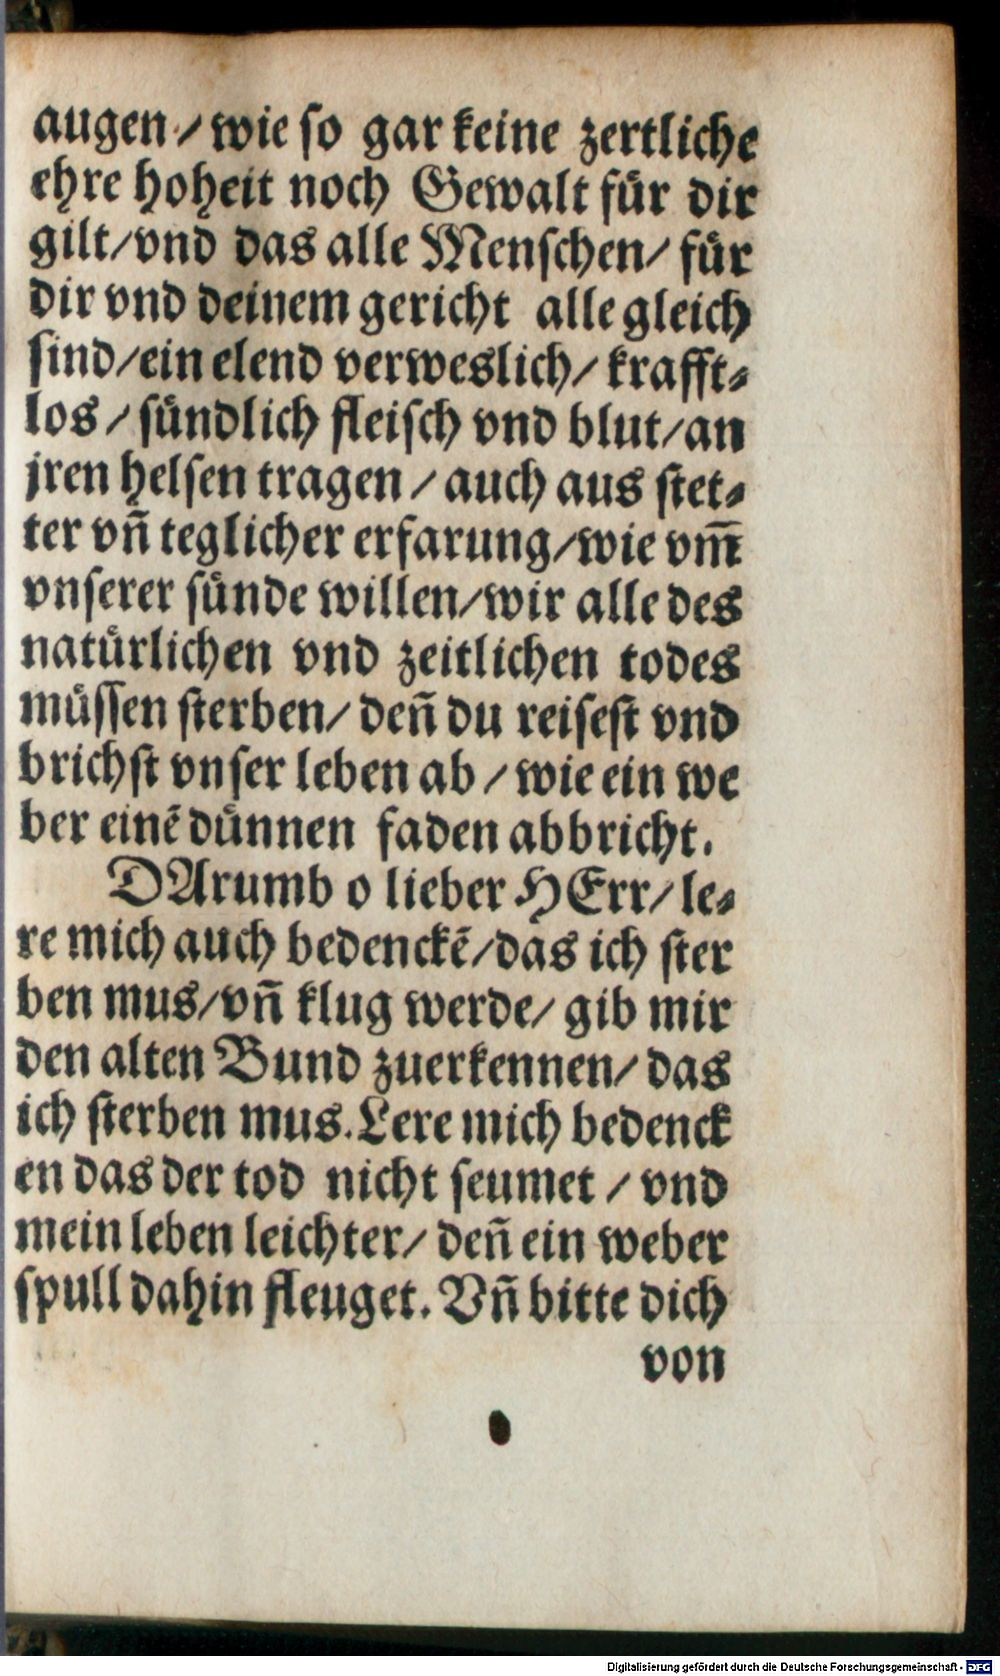 augen / wie so gar keine zertliche
ehre hoheit noch Gewalt für dir
gilt/vnd das alle Menschen/ für
dir vnd deinem gericht alle gleich
sind/ein elend verweslich/ krafft⸗
los / sündlich fleisch vnd blut/an
jren helsen tragen / auch aus stet⸗
ter vñ teglicher erfarung/wie vm̃
vnserer sünde willen/wir alle des
natürlichen vnd zeitlichen todes
müssen sterben/ deñ du reisest vnd
brichst vnser leben ab / wie ein we
ber einẽ dünnen faden abbricht.
DArumb o lieber HErr/ le⸗
re mich auch bedenckẽ/das ich ster
ben mus/vñ klug werde/ gib mir
den alten Bund zuerkennen/ das
ich sterben mus. Lere mich bedenck
en das der tod nicht seumet / vnd
mein leben leichter/ deñ ein weber
spull dahin fleuget. Vñ bitte dich
von
Digitalisierung gefördert durch die Deutsche Forschungsgemeinschaft - DFG